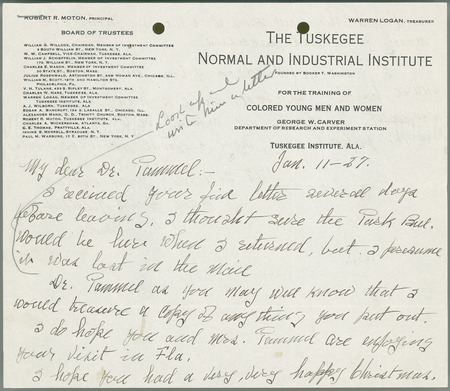 ROBERT R. MOTON, PRINCIPAL
WARREN LOGAN, TREASURER
BOARD OF TRUSTEES
WILLIAM G. WILLCOX, CHAIRMAN, MEMBER OF INVESTMENT COMMITTEE
3 SOUTH WILLIAM ST., NEW YORK, N. Y.
W. W. CAMPBELL, VICE-CHAIRMAN, TUSKEGEE, ALA.
WILLIAM J. SCHIEFFELIN, MEMBER OF INVESTMENT COMMITTEE
170 WILLIAM ST., NEW YORK, N. Y.
CHARLES E. MASON, MEMBER OF INVESTMENT COMMITTEE
30 STATE ST., BOSTON, MASS.
JULIUS ROSENWALD, ARTHINGTON ST. AND HOMAN AVE., CHICAGO, ILL.
WILLIAM M. SCOTT, 18TH AND HAMILTON STS.
PHILADELPHIA, PA.
V. H. TULANE, RIPLEY ST., MONTGOMERY, ALA.
CHARLES W. HARE, TUSKEGEE, ALA.
WARREN LOGAN, MEMBER OF INVESTMENT COMMITTEE
TUSKEGEE INSTITUTE, ALA.
A. J. WILBORN, TUSKEGEE, ALA.
EDGAR A. BANCROFT, LASALLE ST., CHICAGO, ILL.
ALEXANDER MANN, D. D., TRINITY CHURCH, BOSTON, MASS.
ROBERT R. MOTON, TUSKEGEE INSTITUTE, ALA.
CHARLES A. WICKERSHAM, ATLANTA, GA.
G. E. THOMAS, PRATTVILLE, ALA.
IRVING S. MERRELL, SYRACUSE, N. Y.
PAUL M. WARBURG, NEW YORK, N. Y.
THE TUSKEGEE
NORMAL AND INDUSTRIAL INSTITUTE
FOUNDED BY BOOKER T. WASHINGTON
FOR THE TRAINING OF
COLORED YOUNG MEN AND WOMEN
GEORGE W. CARVER
DEPARTMENT OF RESEARCH AND EXPERIMENT STATION
TUSKEGEE INSTITUTE, ALA.
Look up and
write him a letter
Jan. 11-27.
My dear Dr. Pammel:-
I received your fine letter several days
before leaving, I thought sure the Park Bul.
would be here when I returned, but I presume
it was lost in the mail
Dr. Pammel as you may well know that I
would treasure a copy of anything you put out.
I do hope you and Mrs. Pammel are enjoying
your visit in Fla.
I hope you had a very, very happy Christmas.